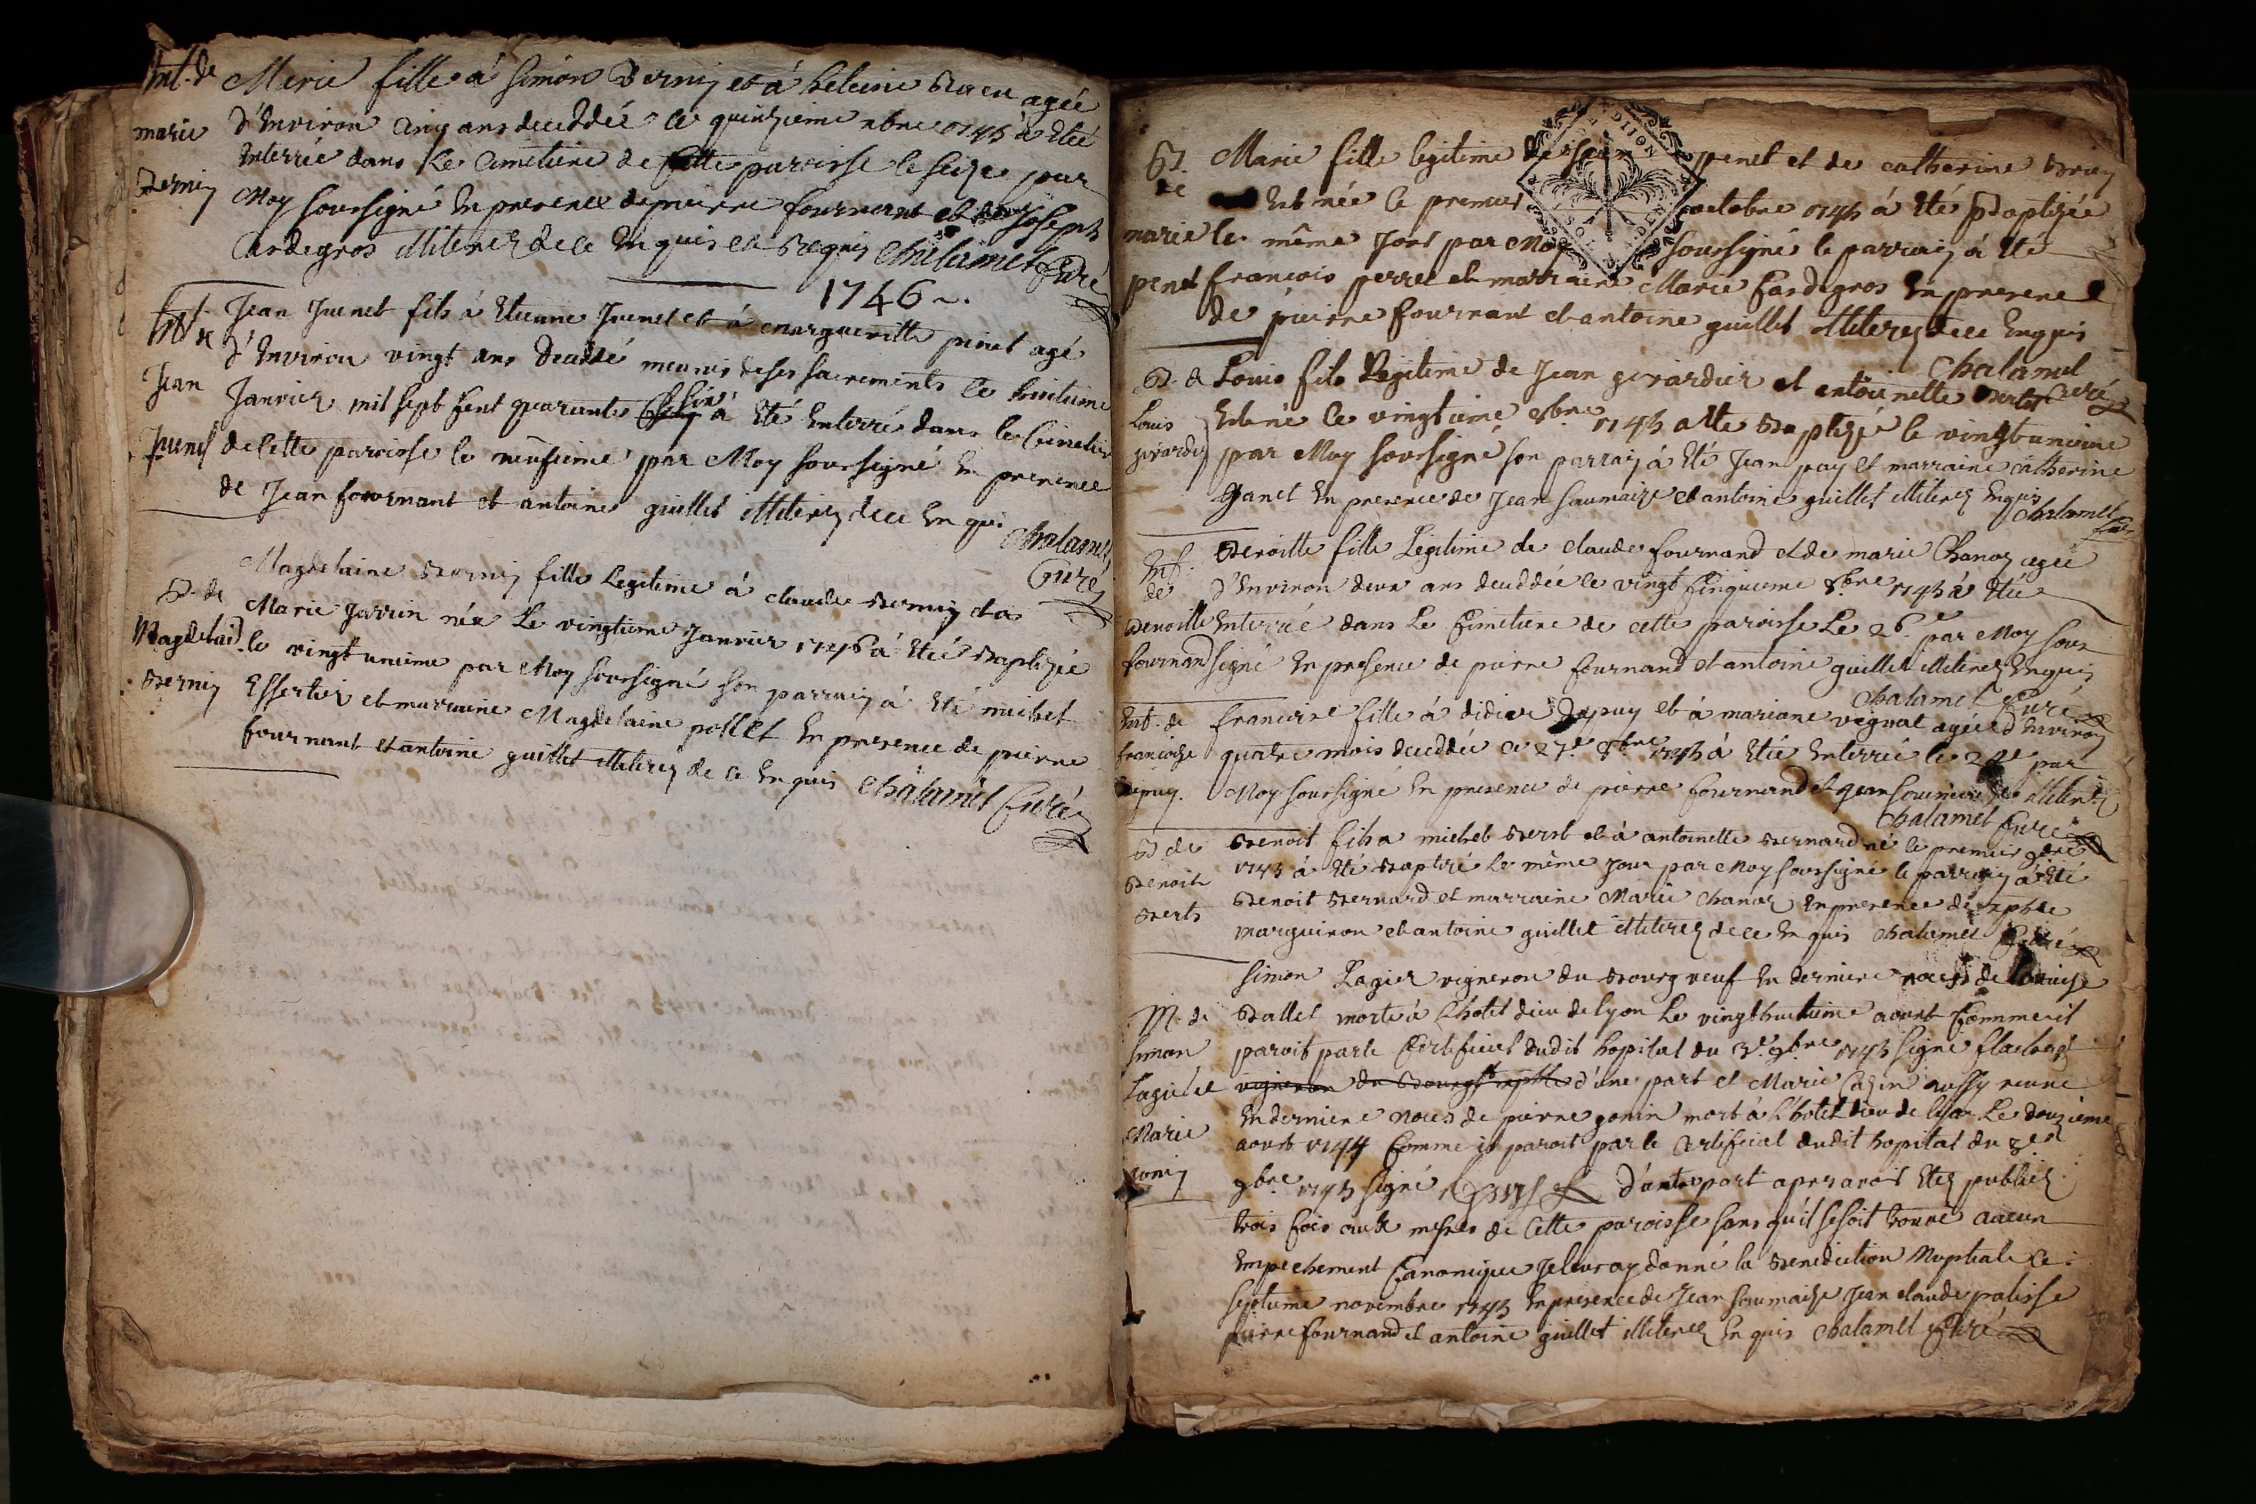 Ent. de
marie
Bernin
Marie fille à simon Bernin et à heleine agée
d'Environ cinq ans deceddée le quinzieme xbre 1745 à Eté
Enterrée dans Le Cimetiere de Cette paroisse le seize par
Moy soussigné En presence de pierre fournant et de Joseph
Cardegros illiterez de ce Enquis et Requis Chalamel Curé
1746
Ent. de
Jean
Junet
Jean Junet fils à Etienne Junet et à margueritte pinet agé
d'Environ vingt ans deceddé meunis de ses sacrements le huitieme
Janvier mil sept Cent quarante six à Eté Enterré dans le Cimetier
de Cette paroisse le neufieme par Moy soussigné En presence
de Jean fournant et antoine guillet illiterez de ce En quis
Chalamel
Curé
B. de
Magdelaid.
Bernin
Magdelaine Bernin fille Legitime à claude Bernin et à
Marie Jarrin née Le vingtieme Janvier 1746 à Eté Baptizée
le vingt unieme par Moy soussigné son parrain à Eté michel
Essertier et marraine Magdelaine pollet En presence de pierre
fournant et antoine guillet illiterez de ce En quis Chalamel Curé
B.
de
marie
penet
Marie fille legitime de penet et de catherine
Est née le premier octobre 1745 à Eté Baptizée
le même Jour par Moy soussigné le parrain à Eté
francois perret et marraine Marie Cardegros En presence
de pierre fournant et antoine guillet illiterez de ce Enquis
Chalamel
Curé
B. de
Louis
girardier
Louis fils Legitime de Jean girardier et antoinette Bertet
Est né le vingtieme 8bre 1745 a Ete Baptizé le vingt unieme
par Moy soussigné son parrain à Eté Jean pay et marraine catherine
ganet En presence de Jean saumaize et antoine guillet illiterez Enquis
Chalamel
Curé
Ent.
de
Benoitte
fournand
Benoitte fille Legitime de claude fournand et de marie Chanaz agée
d'Environ deux ans deceddée le vingt Cinquieme 8bre 1745 à Eté
Enterrée dans Le Cimetiere de cette paroisse Le 26e par Moy sous
signé En presence de pierre fournand et antoine guillet illiterez Enquis
Chalamel Curé
Ent. de
francoise
Depuy.
francoise fille à didier Depuy et à mariane vignat agée d'Environ
quatre mois deceddée le 27e 8bre 1745 à Eté Enterrée le par
Moy soussigné En presence de pierre fournand et Jean saumaize illiterez
Chalamel Curé
B de
Benoit
Bert
Benoit fils a michel Bert et à antoinette Bernard né le premier 9bre
1745 à Eté Baptizé Le même Jour par Moy soussigné le parrain à Eté
Benoit Bernard et marraine Marie chanaz En presence de
marguiron et antoine guillet illiterez de ce En quis Chalamel Curé
M. de
simon
Lagier et
Marie
gonin
simon Lagier vigneron du Bourg veuf En derniere noces de Louise
Ballet morte à L'hotel dieu de lyon Le vingt huitieme aoust Comme il
paroit par le Certificat dudit hopital du 3e 9bre 1745 signé
vigneron du Bourg d'une part et Marie aussy veuve
En derniere noces de pierre gonin mort à L'hotel dieu de lyon Le douzieme
aoust 1744 Comme il paroit par le Certificat dudit hopital du 3e
9bre 1745 signé d'autre part apres avoir Etez publiez
trois fois aux messes de Cette paroisse sans qu'il se soit trouvé aucun
Empechement Canonique Je leur ay donné la Benediction Nuptiale ce
septieme novembre 1745 En presence de Jean saumaize Jean claude palisse
pierre fournand et antoine guillet illiterez En quis Chalamel Curé